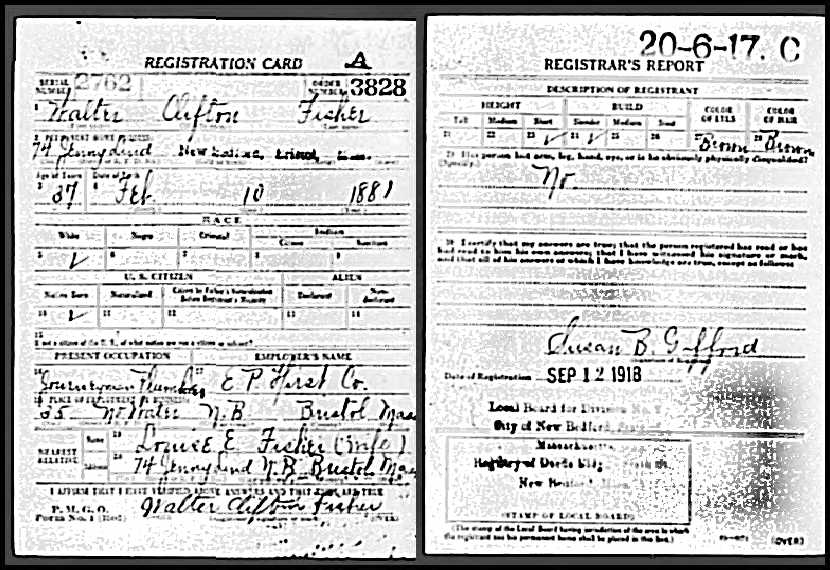 REGISTRATION CARD A
SERIAL NUMBER 2762 ORDER NUMBER 3828
1 Walter Clifton Fisher
2 PERMANENT HOME ADDRESS
74 Jennylind New Bedford, Bristol, Mass.
Age in Years Date of Birth
3 37 4 Feb. 10 1881
RACE
White Negro Oriental Indian
Citizen
5 ✓ 6 7 8 9
U. S. CITIZEN ALIEN
Native Born Naturalized Declarant Non-declarant
10 ✓ 11 12 13 14
15
PRESENT OCCUPATION EMPLOYER'S NAME
16 Journeyman Plumber 17 E P Hirst Co.
18 PLACE OF EMPLOYMENT
25 No Water N.B Bristol Mass
NEAREST RELATIVE Name 19 Louise E. Fisher (Wife)
Address 20 74 Jennylind N.B. Bristol Mass
I AFFIRM THAT I HAVE VERIFIED ABOVE ANSWERS AND THAT THEY ARE TRUE
P. M. G. O.
Form No. 1 Walter Clifton Fisher
20-6-17. C
REGISTRAR'S REPORT
DESCRIPTION OF REGISTRANT
HEIGHT BUILD COLOR OF EYES COLOR OF HAIR
Tall Medium Short Slender Medium Stout
21 22 23 ✓ 24 ✓ 25 26 27 Brown 28 Brown
29 Has person lost arm, leg, hand, eye, or is he obviously physically disqualified?
(Specify.)
No.
30 I certify that my answers are true; that the person registered has read or has
had read to him his own answers; that I have witnessed his signature or mark,
and that all of his answers of which I have knowledge are true, except as follows:
Susan B. Gifford
Date of Registration SEP 12 1918
Local Board for Division No.
City of New Bedford,
Massachusetts
Registry of Deeds Bldg.
New Bedford, Mass.
(STAMP OF LOCAL BOARD)
(The stamp of the Local Board having jurisdiction of the area in which
the registrant has his permanent home shall be placed in this box.)
(OVER)